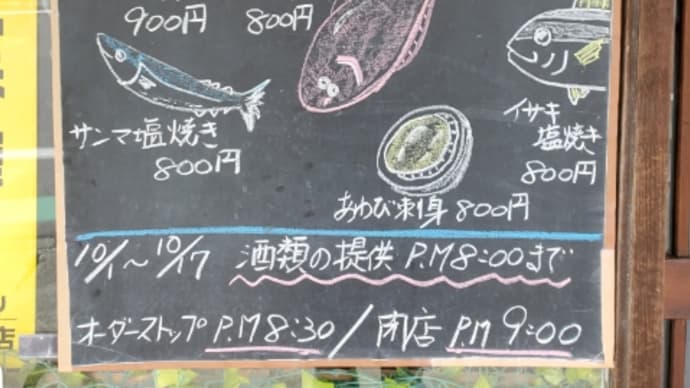 900円
800円
サンマ塩焼き
800円
イサキ
塩焼き
800円
あわび刺身 800円
10/1~10/17 酒類の提供 P.M 8:00まで
オーダーストップ P.M 8:30/閉店 P.M 9:00
店